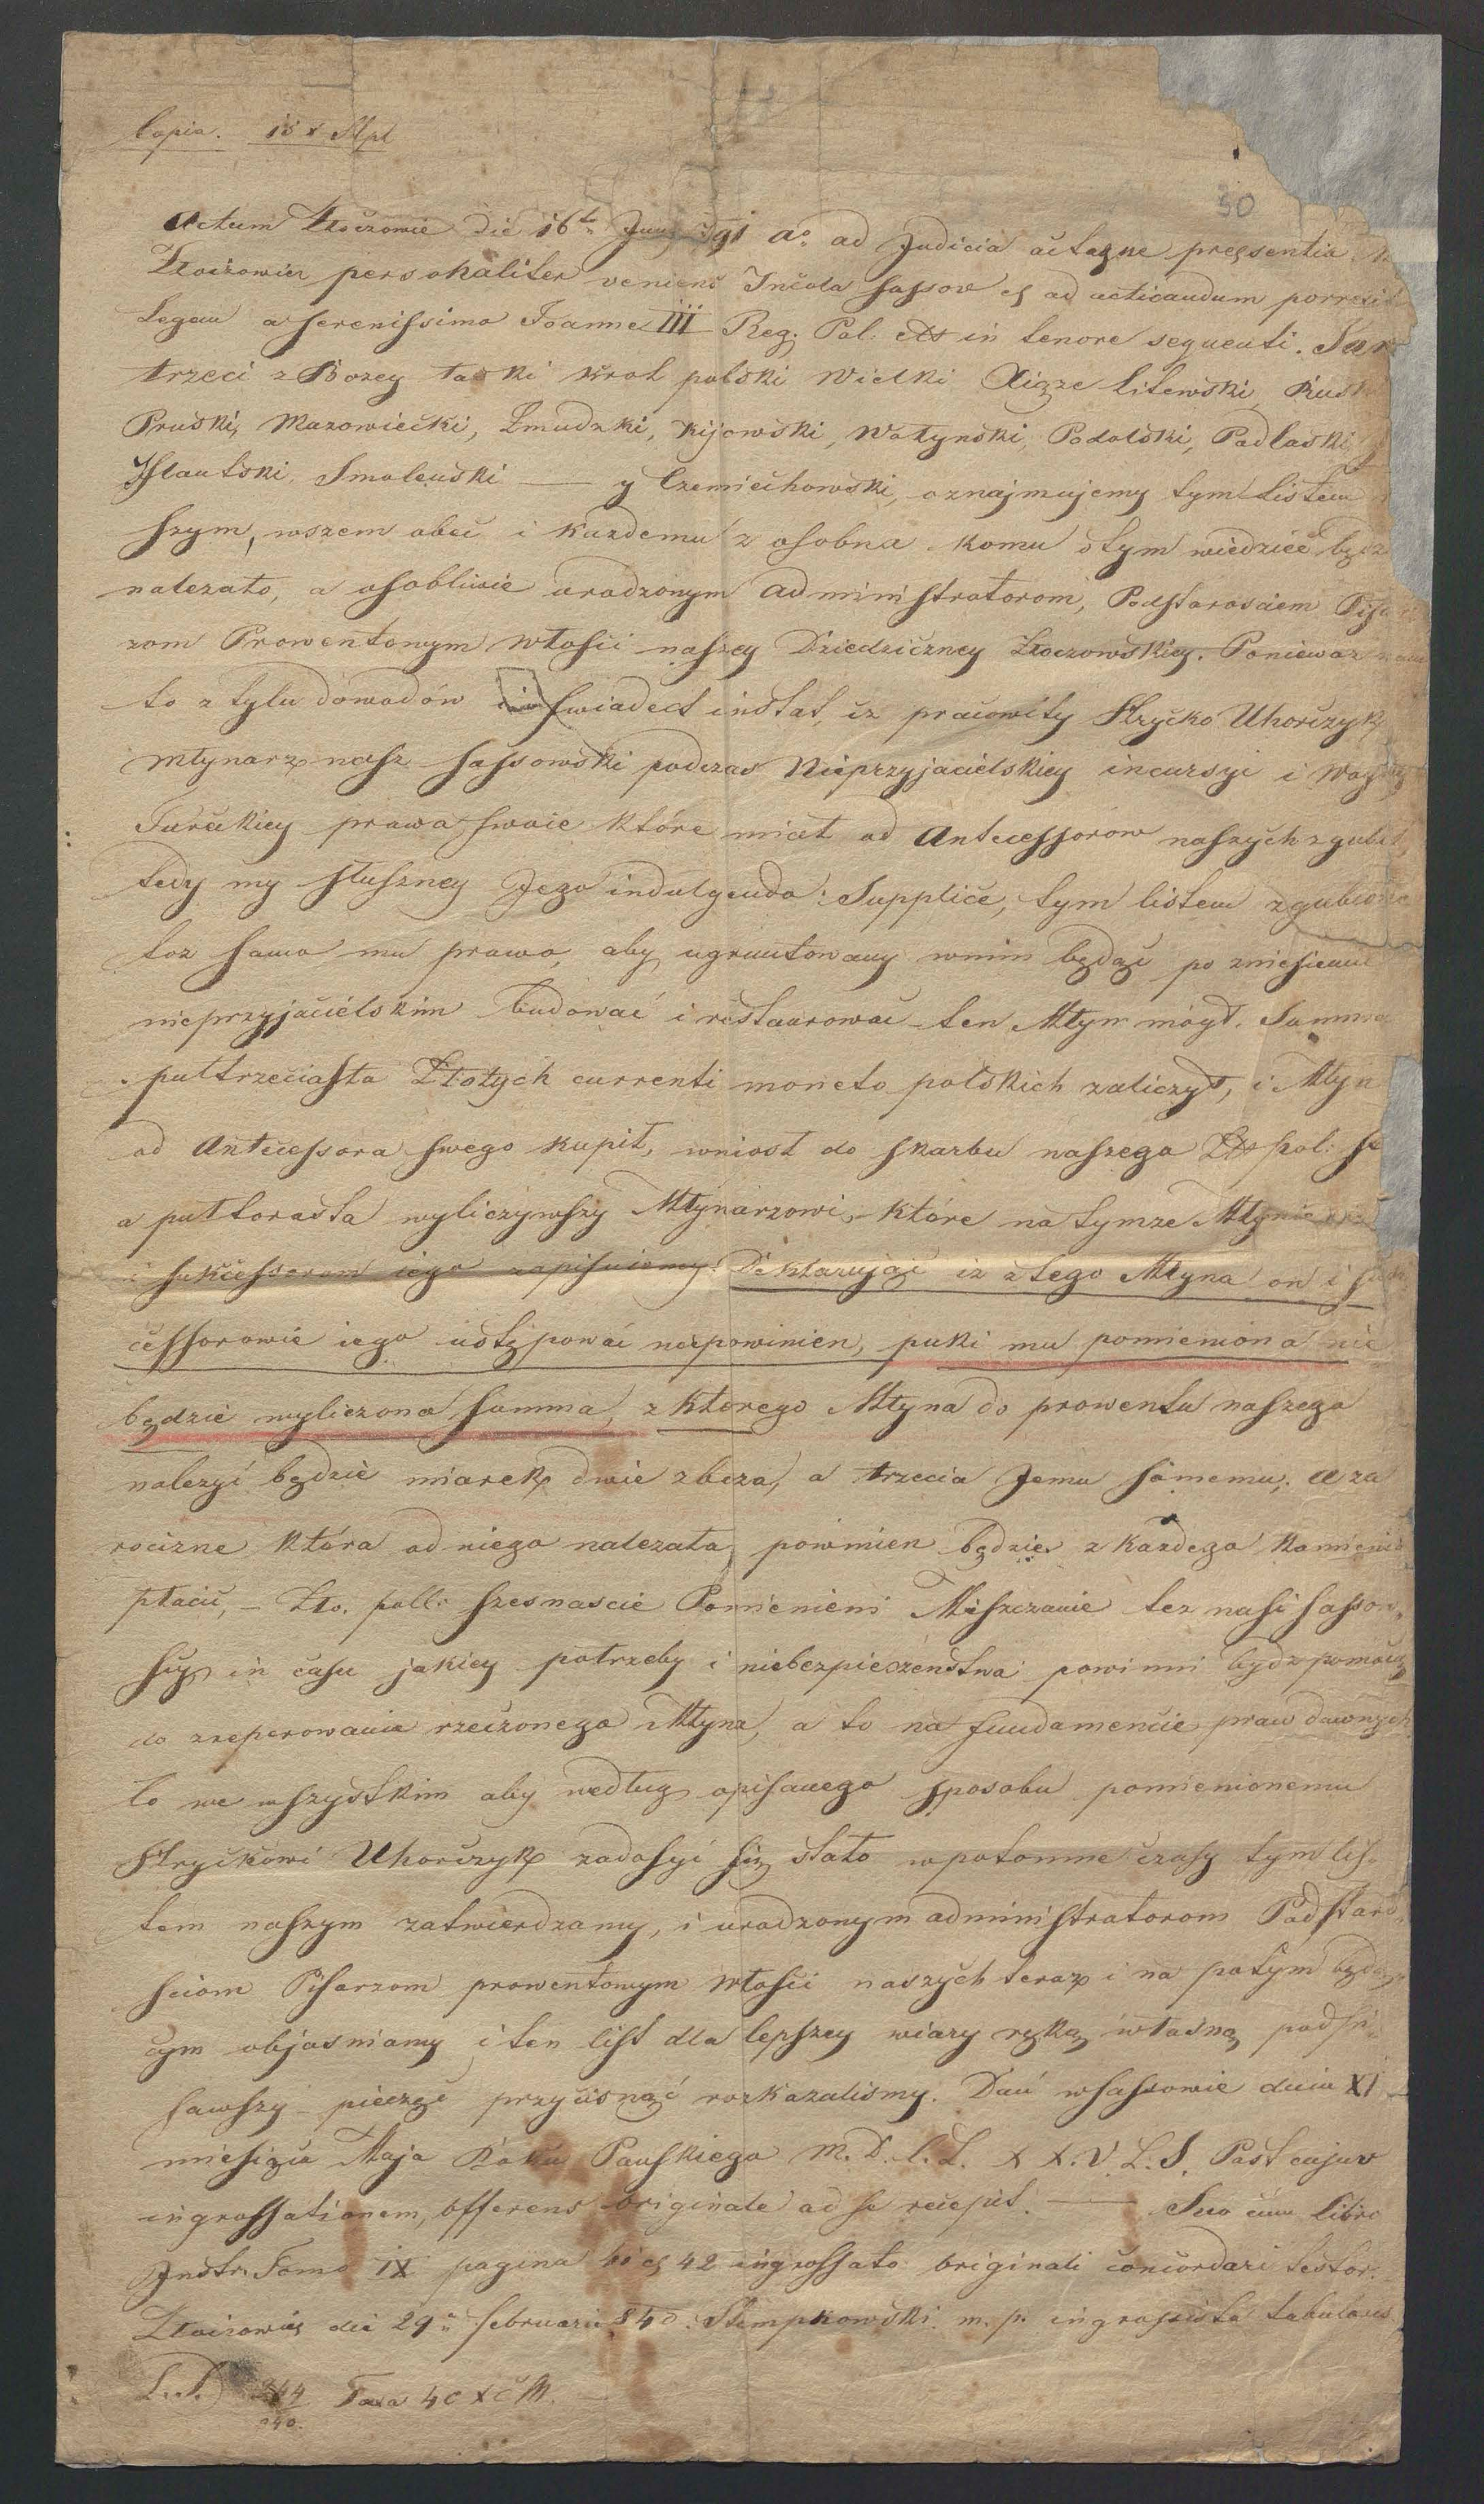 Copia. 15 x Stpl
30
Actum Złoczowie die 16ta Juny 791 ao ad Judicia actaque presentia
Złoczowien personaliter veniens Incola Sassov et ad acticandum porrexit
Legau a serenissimo Joanne III Reg. Pol. etts in tenore sequenti. Jan
trzeci z Bozey łaski krol polski Wielki Xiąze Litewski, Rusk
Pruski, Mazowiecki, Zmudzki, Kijowski, Wołynski, Podolski, Podlaski,
Iflantski, Smolenski — y Czerniechowski, oznajmujemy tym listem
szym, wszem obec i kazdemu z osobna komu o tym wiedzieć będz
nalezało, a osobliwie urodzonym administratorom, Podstarosciem Pisa
zom Prowentowym włosci naszey Dziedziczney Złoczowskiey. Poniewaz nam
to z tylu dowodów i swiadect instat, iz pracowity Hryćko Uhorczyk
młynarz nasz sassowski podczas Nieprzyjacielskiey incursyi i Woyny
Tureckiey prawa swoie które miał od Antecessorow naszych zgubił,
tedy my słuszney Jego indulgendo Supplice, tym listem zgubione
toz samo mu prawo, aby ugruntowany wnim będąc po zniesieniu
nieprzyjacielskim budować i restaurować ten Młyn mógł. Summa
puttrzeciasta Złotych currenti moneto polskich zaliczył, i Młyn
od Antecessora swego kupił, wniosł do skarbu naszego Złts pol: st
a puttorasta wyliczywszy Młynarzowi, które na tymze Młynie
i sukcessorom iego zapisuiemy: Deklarując iz z tego Młyna on i suk
cessorowie iego ustępować niepowinien, puki mu pomieniona nie
będzie wyliczona summa, z ktorego Młyna do prowentu naszego
nalezyć będzie miarek dwie zboza, a trzecia Jemu samemu; a za
roczizne która od niego nalezała, powinien będzie z kazdego kamienia
płacić, – Zło. poll: szesnascie Pomienieni Miszczanie tez nasi Sassow-
scy in casu jakiey potrzeby i niebezpieczenstwa powinni bydz pomocą
do zreperowania rzeczonego Młyna, a to na fundamencie praw dawnych
to we wszystkim aby według opisanego sposobu pomienionemu
Hryćkowi Uhorczyk zadosyć się stało w potomne czasy tym lis-
tem naszym zatwierdzamy, i urodzonym administratorom Podstaro-
sciom Pisarzom prowentowym włosci naszych teraz i na potym będą-
cym objasniamy i ten list dla lepszey wiary ręką własną podpi-
sawszy pieczęć przycisnąć rozkazalismy. Dań w Sassowie dnia XI
miesiąca Maja Roku Panskiego M. D. C. L. X X. V. L. S. Post cujus
ingrossationem, offerens originale ad se recepit. — Suo cum libro
Instr. Tomo IX pagina 40 et 42 ingrossato originali concordari testor.
Złoczowie die 29a februarii 840. Stempkowski m. p. ingrossista tabularis
L.S. 244 Taxa 40 x C M.
840.